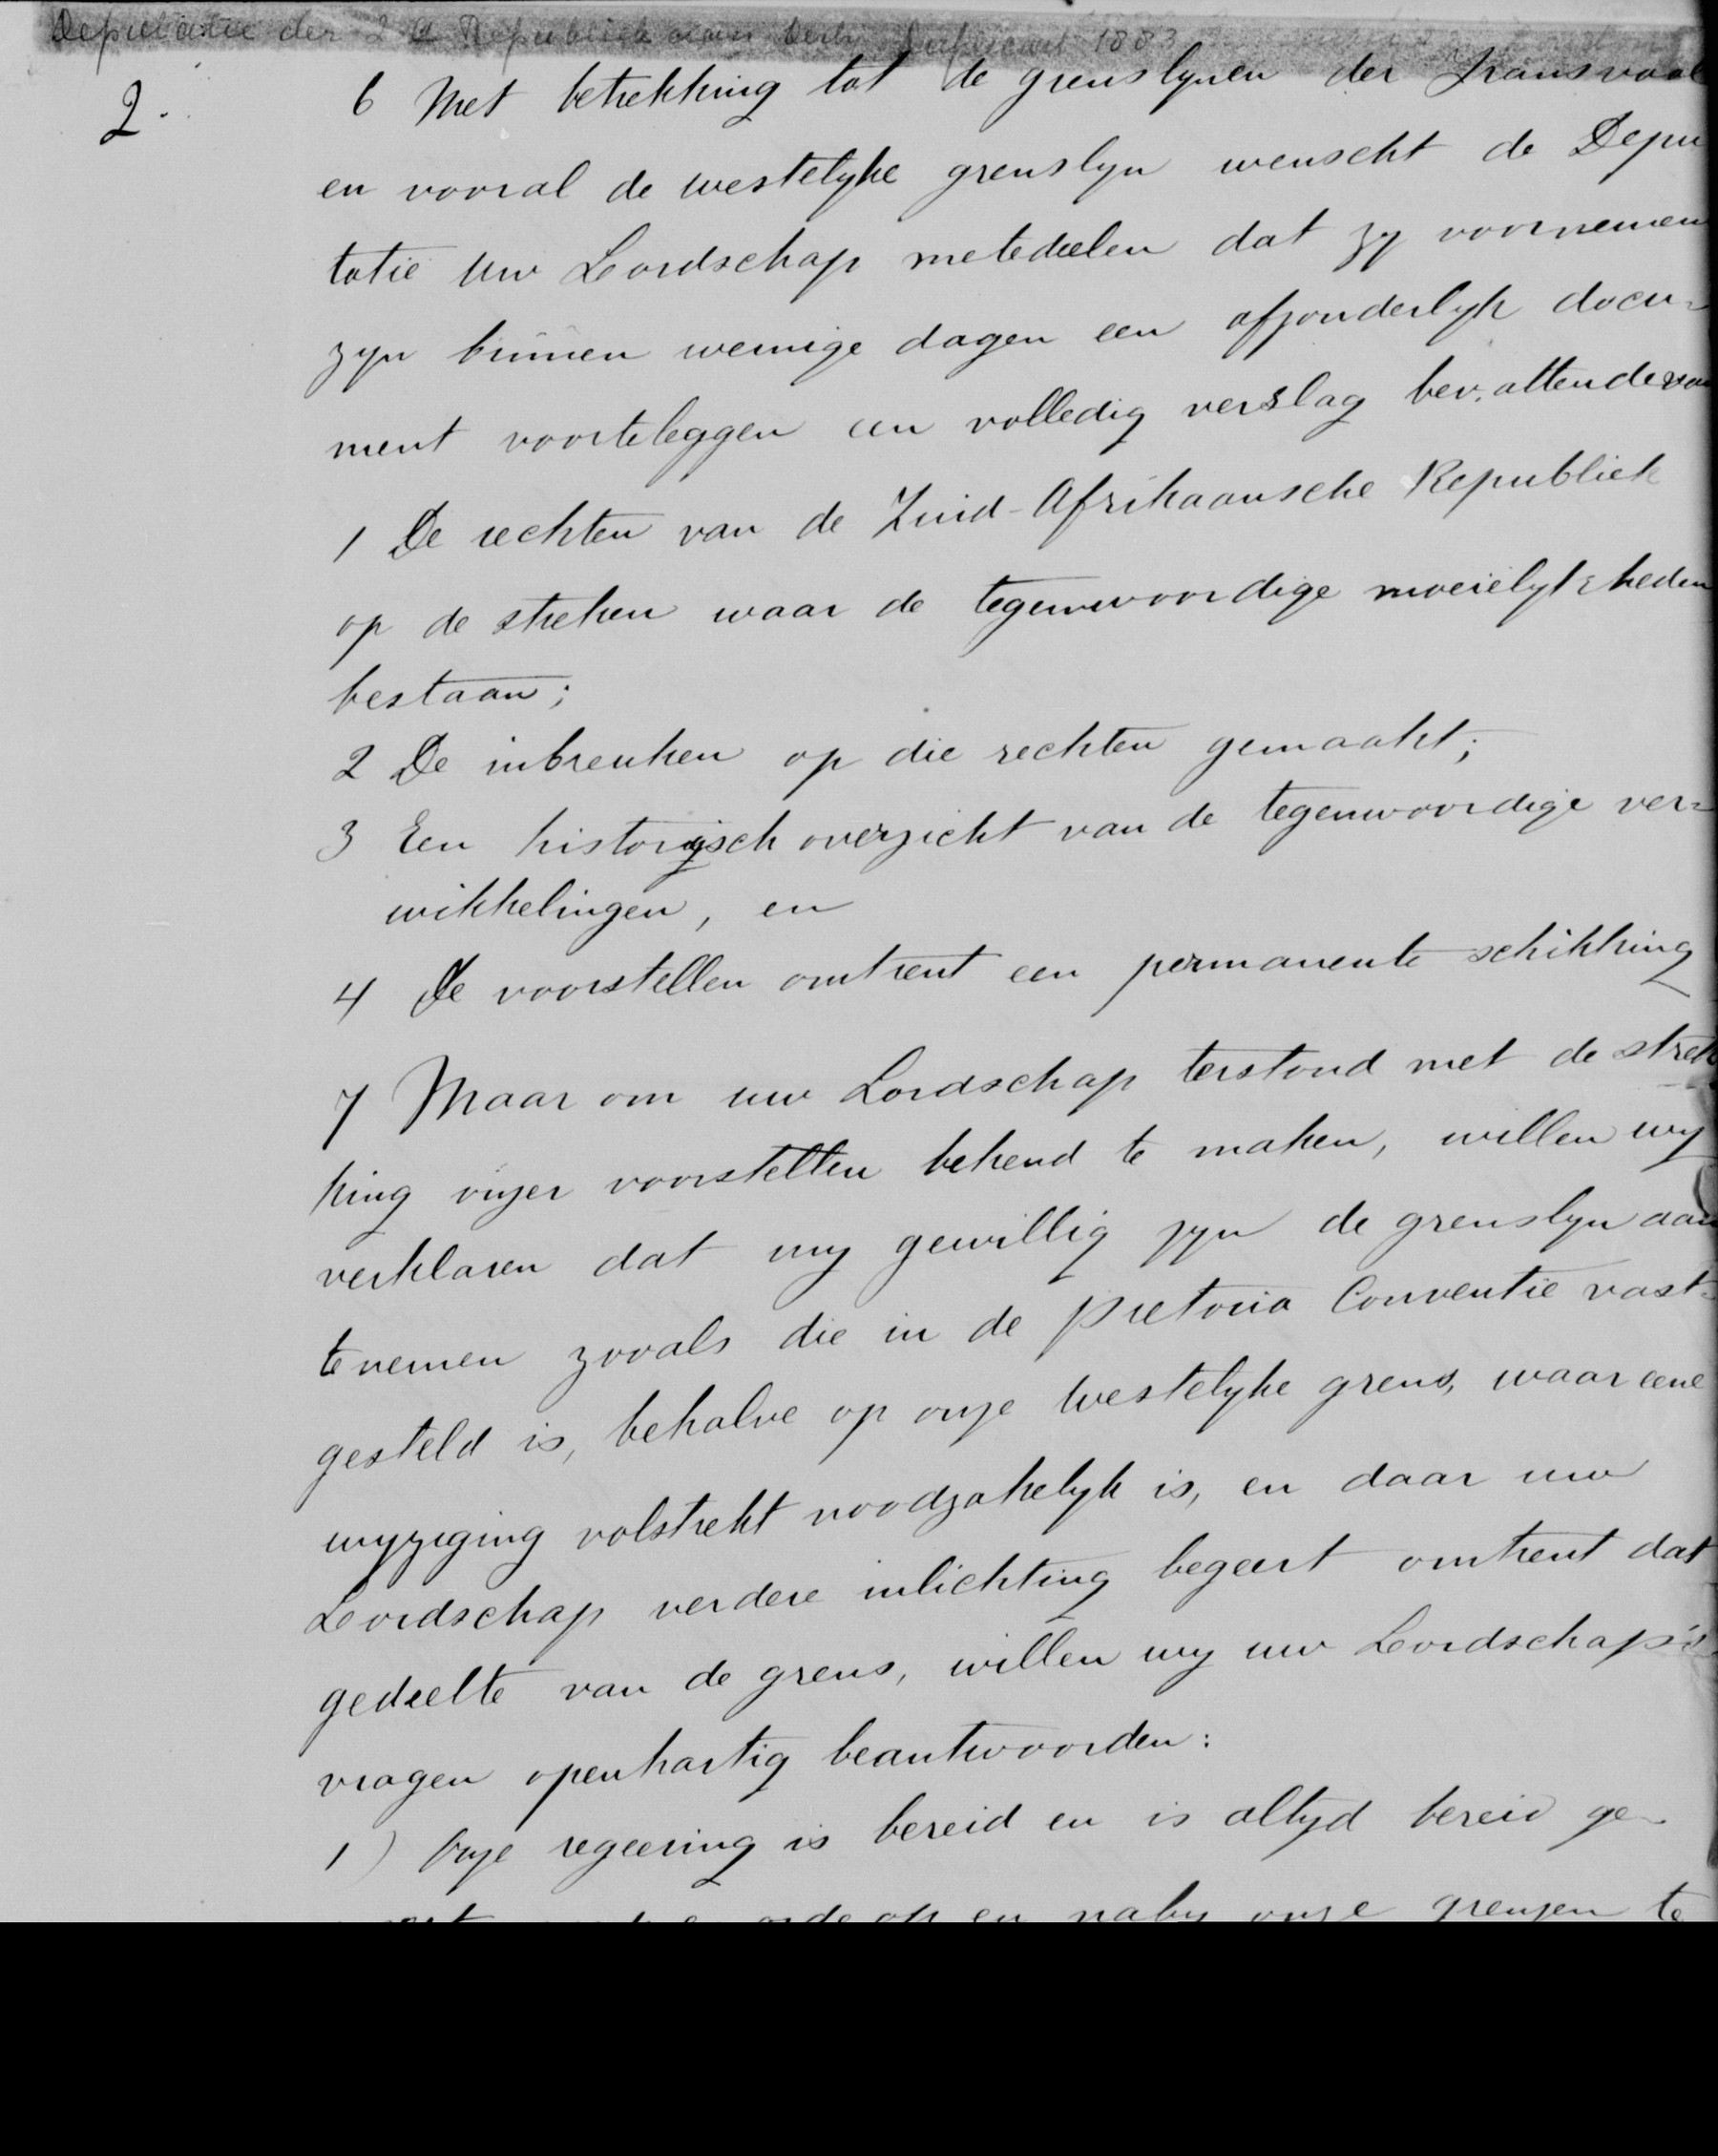 Deputatie der Z A Republiek aan Derby 1883
2.
6 Met betrekking tot de grenslynen der Transvaal
en vooral de westelyke grenslyn wenscht de Depu
tatie Uw Lordschap metedeelen dat zy voornemen
zyn binnen weinige dagen een afzonderlyk docu-
ment voorteleggen een volledig verslag bevattende van
1 De rechten van de Zuid-Afrikaansche Republiek
op de streken waar de tegenwoordige moeielykheden
bestaan;
2 De inbreuken op die rechten gemaakt;
3 Een historisch overzicht van de tegenwoordige ver=
wikkelingen, en
4 De voorstellen omtrent een permanente schikking
7 Maar om uw Lordschap terstond met de strek
king onzer voorstellen bekend te maken, willen wy
verklaren dat wy gewillig zyn de grenslyn aan
tenemen zooals die in de Pretoria Conventie vast=
gesteld is, behalve op onze westelyke grens, waar eene
wyziging volstrekt noodzakelyk is, en daar uw
Lordschap verdere inlichting begeert omtrent dat
gedeelte van de grens, willen wy uw Lordschap's
vragen openhartig beantwoorden:
1) Onze regeering is bereid en is altyd bereid ge-
orde op en naby onze grenzen te